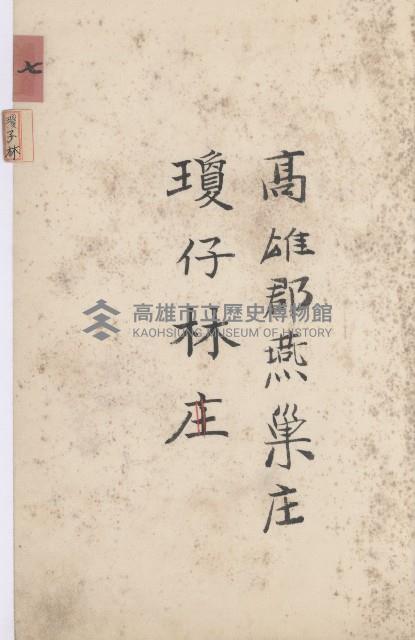 高雄郡燕巢庄
瓊仔林庄
七
瓊子林
高雄市立歷史博物館
KAOHSIUNG MUSEUM OF HISTORY